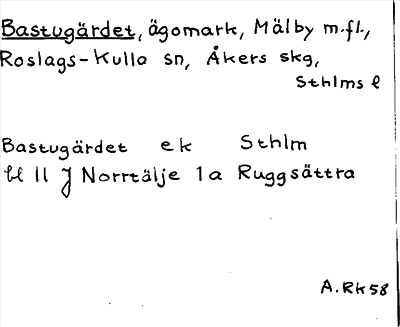 Bastugärdet, ägomark, Mälby m.fl.,
Roslags-Kulla sn, Åkers skg,
Sthlms l
Bastugärdet ek Sthlm
bl 11 J Norrtälje 1a Ruggsättra
A.Rk 58